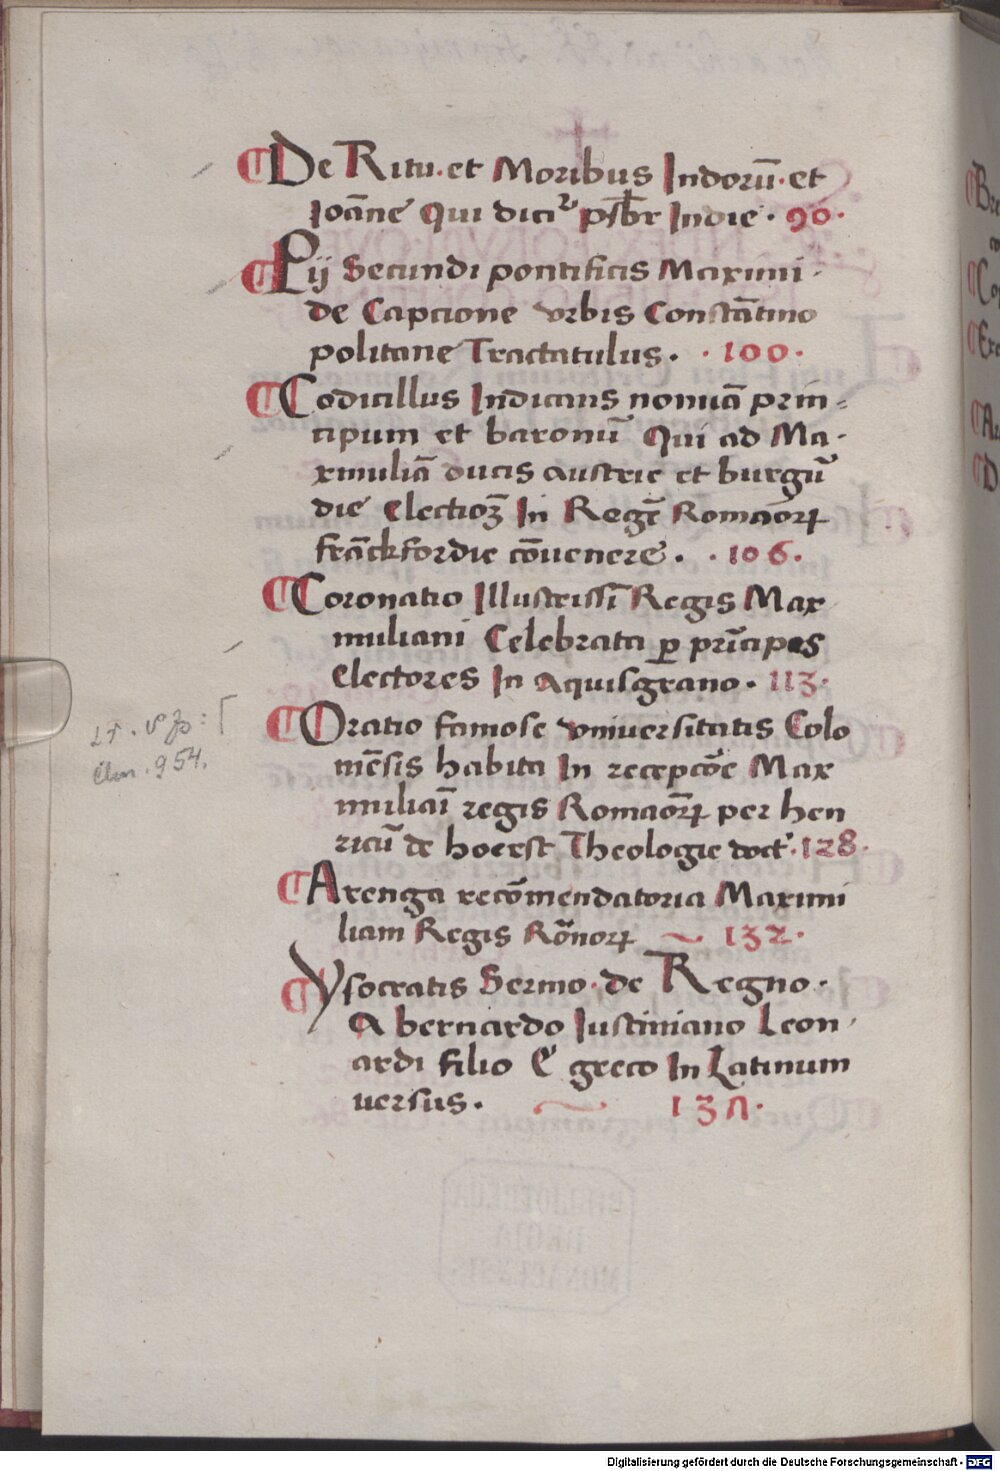 De Ritu. et Moribus Indorū. et
Joāne Qui dicit᷑ psb̄r Indie. 90.
Pij Secundi pontificis Maximi
de Capcione vrbis Constātino
politane Tractatulus. .100.
Codicillus Indicans nomīa prin-
cipum et baronū Qui ad Ma-
ximiliā ducis austrie et burgū
die electioꝫ In Regē Romāoꝝ
frāckfordie cōuenere. .106.
Coronatio Illustrissī Regis Max
imiliani Celebrata ꝑ prīcipes
Electores In aquisgrano. 113.
Oratio famose vniuersitatis Colo
niēsis habita In recepcōe Max
imiliāi regis Romāoꝝ per hen
ricū de hoerst Theologie doct'. 128.
Arenga recōmendatoria Maximi
liani Regis Rōnoꝝ 132.
Ysocratis Sermo. de Regno.
A bernardo Iustiniano Leon
ardi filio E greco In Latinum
uersus. 137.
Clm. 954.
BIBLIOTHECA
REGIA
MONACENSIS
Digitalisierung gefördert durch die Deutsche Forschungsgemeinschaft - DFG